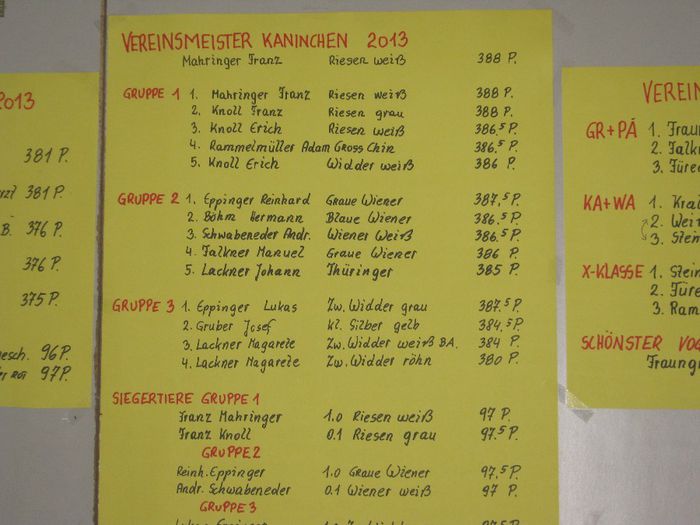 2013
381 P.
381 P.
B. 376 P.
376 P.
375 P.
esch. 96 P.
97 P.
VEREINSMEISTER KANINCHEN 2013
Mahringer Franz Riesen weiß 388 P.
GRUPPE 1 1. Mahringer Franz Riesen weiß 388 P.
2. Knoll Franz Riesen grau 388 P.
3. Knoll Erich Riesen weiß 386,5 P.
4. Rammelmüller Adam Gross Chin 386,5 P.
5. Knoll Erich Widder weiß 386 P.
GRUPPE 2 1. Eppinger Reinhard Graue Wiener 387,5 P.
2. Böhm Hermann Blaue Wiener 386,5 P.
3. Schwabeneder Andr. Wiener Weiß 386,5 P.
4. Falkner Manuel Graue Wiener 386 P.
5. Lackner Johann Thüringer 385 P.
GRUPPE 3 1. Eppinger Lukas Zw. Widder grau 387,5 P.
2. Gruber Josef kl. Silber gelb 384,5 P.
3. Lackner Magarete Zw. Widder weiß BA. 384 P.
4. Lackner Magarete Zw. Widder röhn 380 P.
SIEGERTIERE GRUPPE 1
Franz Mahringer 1.0 Riesen weiß 97 P.
Franz Knoll 0.1 Riesen grau 97,5 P.
GRUPPE 2
Reinh. Eppinger 1.0 Graue Wiener 97,5 P.
Andr. Schwabeneder 0.1 Wiener weiß 97 P.
GRUPPE 3
VEREIN
GR+PÄ 1. Fraun
2. Falkn
3. Füre
KA+WA 1. Krai
2. Wei
3. Stein
X-KLASSE 1. Stein
2. Füre
3. Ram
SCHÖNSTER VOG
Fraung